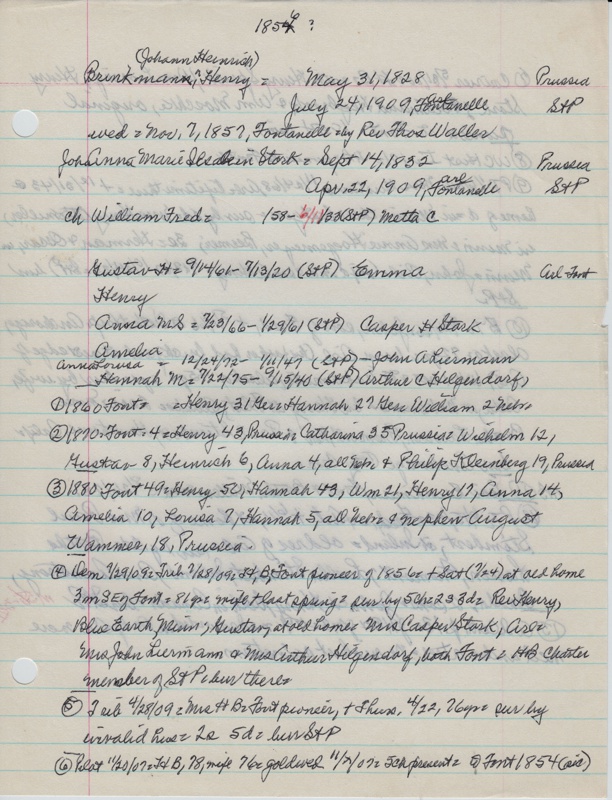 1856 ?
(Johann Heinrich)
Brinkmann, Henry = May 31, 1828 Prussia
July 24, 1909, Fontanelle StP
wed = Nov, 7, 1857, Fontanelle = by Rev Thos Waller
Joh Anna Marie Stork = Sept 14, 1832 Prussia
Apr. 22, 1909, Fontanelle StP
ch William Fred = 158 - 33 (StP) Metta C
Gustav H = 9/14/61 - 7/13/20 (StP) Emma Arl Font
Henry
Anna M S = 7/23/66 - 1/29/61 (StP) Casper H Stork
Amelia
Anna Louisa = 12/24/72 - 1/11/47 (StP) - John A Liermann
Hannah M = 7/22/75 - 9/15/40 (StP) Arthur C Hilgendorf,
① 1860 Font = Henry 31 Ger = Hannah 27 Ger = William 2 Nebr
② 1870 = Font 4 = Henry 43, Prussia = Catharina 35 Prussia = Wilhelm 12,
Gustav 8, Heinrich 6, Anna 4, all Nebr & Philip Kleinberg 19, Prussia
③ 1880 = Font 49 = Henry 50, Hannah 43, Wm 21, Henry 17, Anna 14,
Amelia 10, Louisa 7, Hannah 5, all Nebr & nephew August
Wammer, 18, Prussia.
④ Dem 7/29/09 = Trib 7/28/09 = H, B, Font pioneer of 1856 = + Sat (7/24) at old home
3 m S E of Font = 81 yr = wife + last spring = sur by 5 ch = 2 s 3 d = Rev Henry,
Blue Earth, Minn, Gustav, at old home = Mrs Casper Stork, Arl =
Mrs John Liermann & Mrs Arthur Hilgendorf, both Font = HB charter
member of StP = bur there
⑤ Trib 4/28/09 = Mrs H B = Font pioneer, + Thurs, 4/22, 76 yr = sur by
invalid hus = 2 s 5 d = bur StP
⑥ Pilot 11/20/07 = H B, 78, wife 76 = gold wed 11/7/07 = present = Font 1854 (sic)